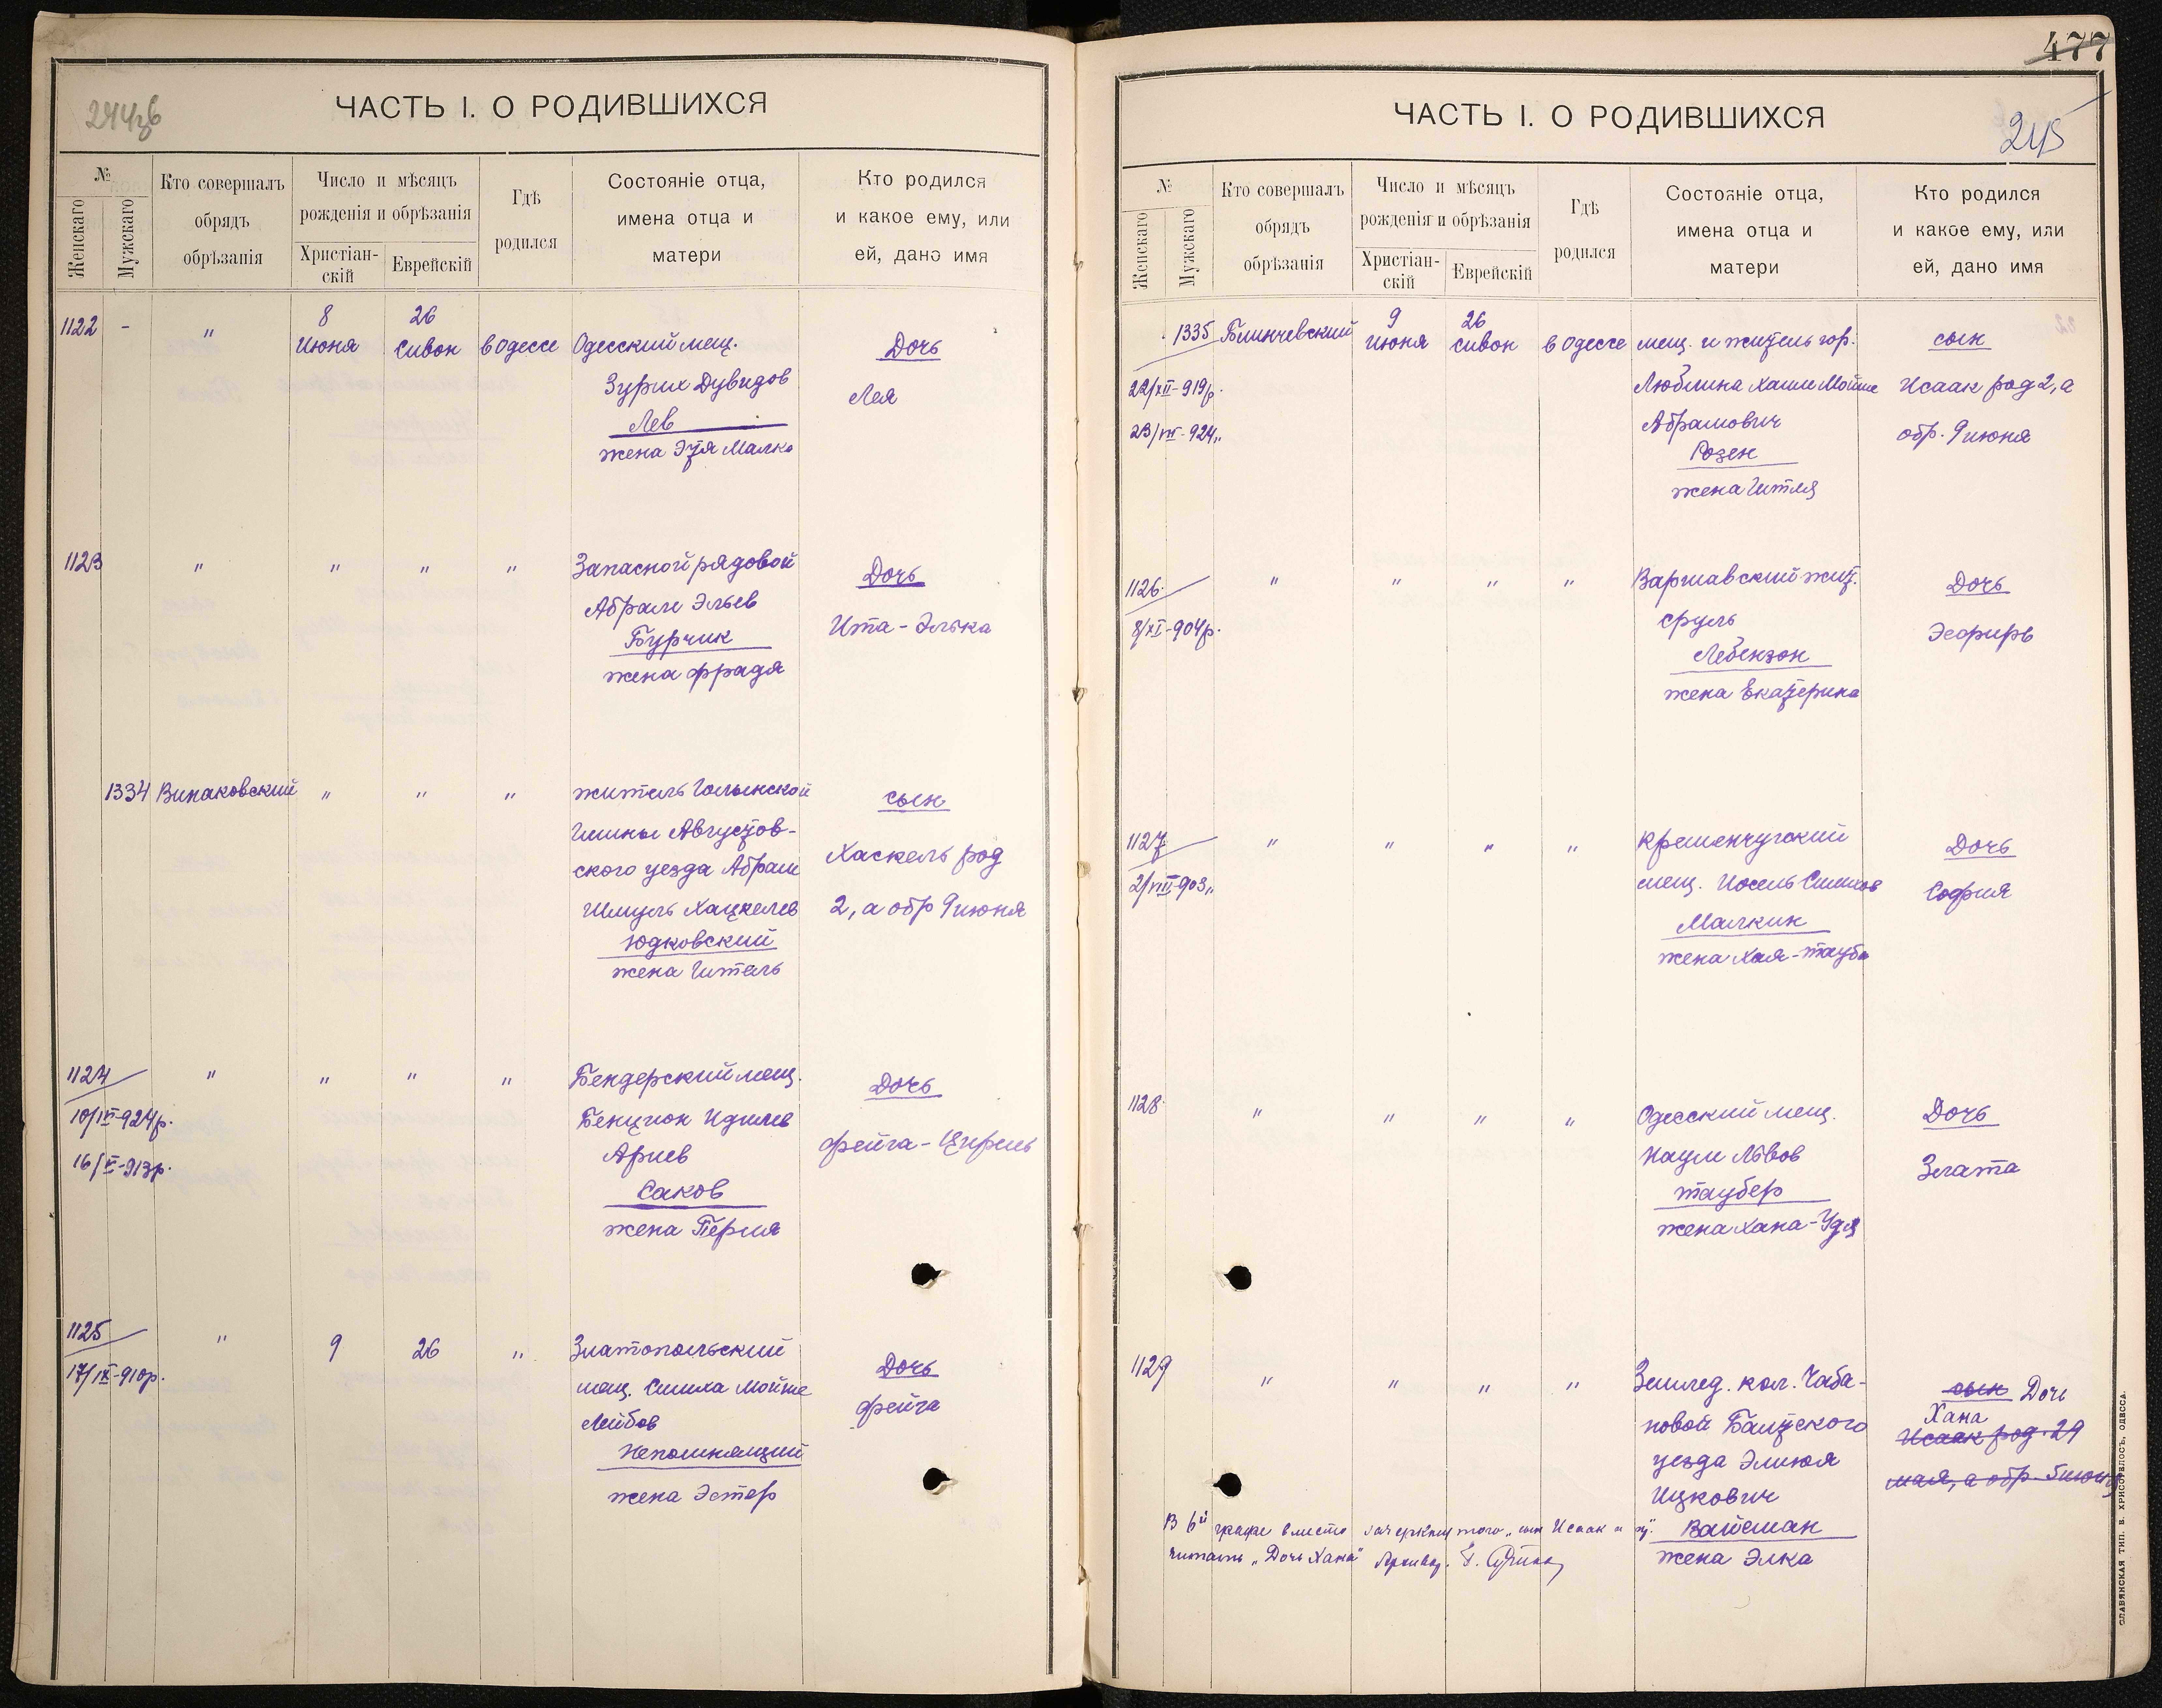 ЧАСТЬ I. О РОДИВШИХСЯ
№
Женскаго
Мужскаго
Кто совершалъ
обрядъ
обрѣзанія
Число и мѣсяцъ
рожденія и обрѣзанія
Христіан-
скій
Еврейскій
Гдѣ
родился
Состояніе отца,
имена отца и
матери
Кто родился
и какое ему, или
ей, дано имя
1122 - " 8 июня 26 сивон в Одессе Одесский мещ.
Зурих Дувидов
Лев
жена ЭTя Малка
Дочь
Лея
1123 " " " " Запасной рядовой
Абрам Эльев
Бурчик
жена Фрадя
Дочь
Ита-Элька
1334 Винаковский " " " житель Голынской
Гмины Августов-
ского уезда Абрам
Шмуль Хацкелев
Юдковский
жена Гитель
сын
Хаскель род
2, а обр 9 июня
1124 " " " " Бендерский мещ.
10/IV-924р.
16/V-913р.
Бенцион Идилев
Ариев
Саков
жена Перля
Дочь
Фейга-Цирель
1125 " 9 26 " Златопольский
17/IX-910р.
мещ. Симха Мойше
Лейбов
Непомнящий
жена Эстер
Дочь
Фейга
477
ЧАСТЬ I. О РОДИВШИХСЯ
245
№
Женскаго
Мужскаго
Кто совершалъ
обрядъ
обрѣзанія
Число и мѣсяцъ
рожденія и обрѣзанія
Христіан-
скій
Еврейскій
Гдѣ
родился
Состояніе отца,
имена отца и
матери
Кто родился
и какое ему, или
ей, дано имя
1335 Блинчевский 9 июня 26 сивон в Одессе мещ. и житель гор.
22/XII-919р.
23/VII-924"
Люблина Хаим Мойше
Абрамович
Розен
жена Гитля
сын
Исаак род 2, а
обр. 9 июня
1126 " " " " Варшавский жит.
8/XI-904р.
Сруль
Лебензон
жена Екатерина
Дочь
Эсфирь
1127 " " " " Кременчугский
2/VIII-903"
мещ. Иосель Симхов
Малкин
жена Хая-Тауба
Дочь
София
1128 " " " " Одесский мещ.
Наум Львов
Таубер
жена Хана-Удя
Дочь
Злата
1129 " " " " Землед. кол. Чаба-
новой Балтского
уезда Элиюя
Ицкович
Вайсман
жена Элка
сын Дочь
Хана
Исаак род. 29
мая, а обр. 5 июня
В 6й графе вместо зачеркнутого "сын Исаак
читать "Дочь Хана" Архивар.
СЛАВЯНСКАЯ ТИП. В. ХРИСОГЕЛОСЪ, ОДЕССА.